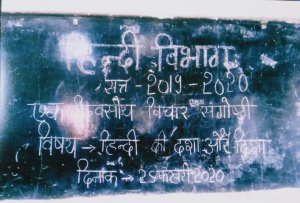 हिन्दी विभाग
सत्र - 2019 - 2020
एक दिवसीय विचार संगोष्ठी
विषय → हिन्दी की दशा और दिशा
दिनांक → 25 फरवरी 2020